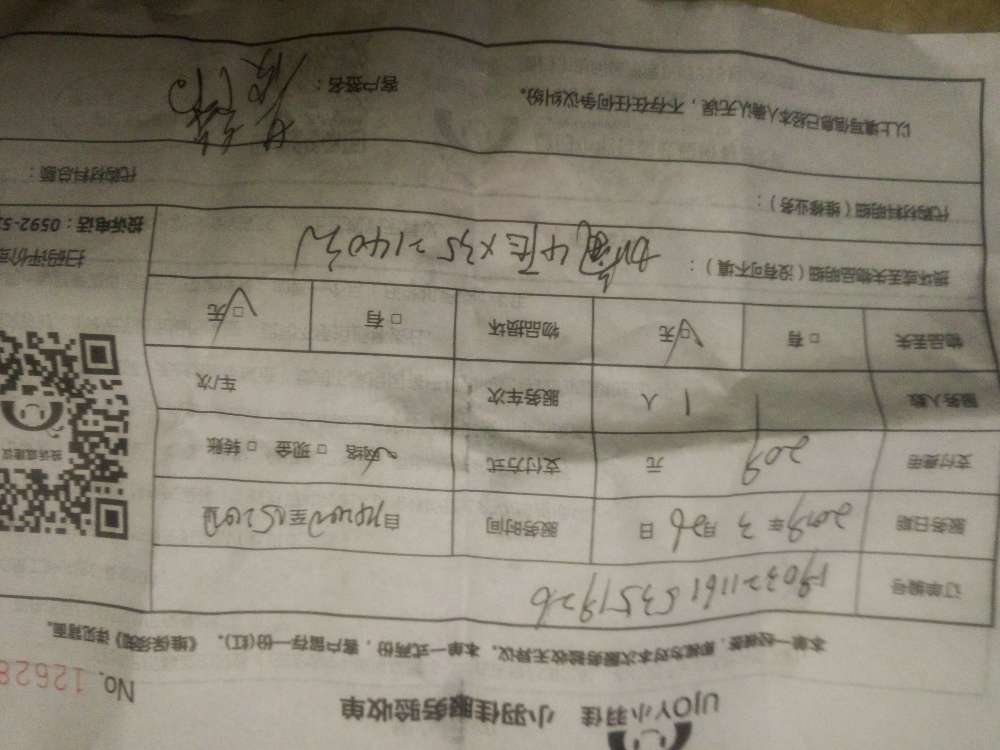 UJOY小羽佳 小羽佳服务验收单
No. 12628
本单一经签署，即视为对本次服务验收无异议。本单一式两份，客户留存一份(红)。《维保须知》详见背面。
订单编号
服务日期 2019 年 3 月 26 日 服务时间 自 至
支付费用 209 元 支付方式 网络 □ 现金 □ 转账
服务人数 1 人 服务车次 车/次
物品丢失 □ 有 □ 无 物品损坏 □ 有 □ 无
投诉或建议
扫码评价或
投诉电话：0592-5
损坏或丢失物品明细（没有可不填）： ×35=140元
代购材料明细（维修业务）： 代购材料总额：
以上填写信息已经本人确认无误，不存在任何争议纠纷。 客户签名：